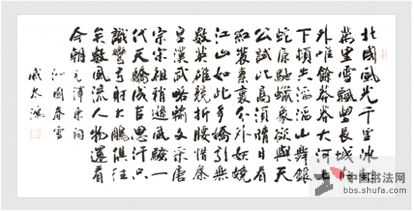 北國風光千里冰封
萬里雪飄望長城內
外唯餘莽莽大河上
下頓失滔滔山舞銀
蛇原馳蠟象欲與天
公試比高須晴日看
紅裝素裹分外妖嬈
江山如此多嬌引無
數英雄競折腰惜秦
皇漢武略輸文采唐
宗宋祖稍遜風騷一
代天驕成吉思汗只
識彎弓射大雕俱往
矣數風流人物還看
今朝 毛澤東詞
沁園春雪
中国书法网
bbs.shufa.com